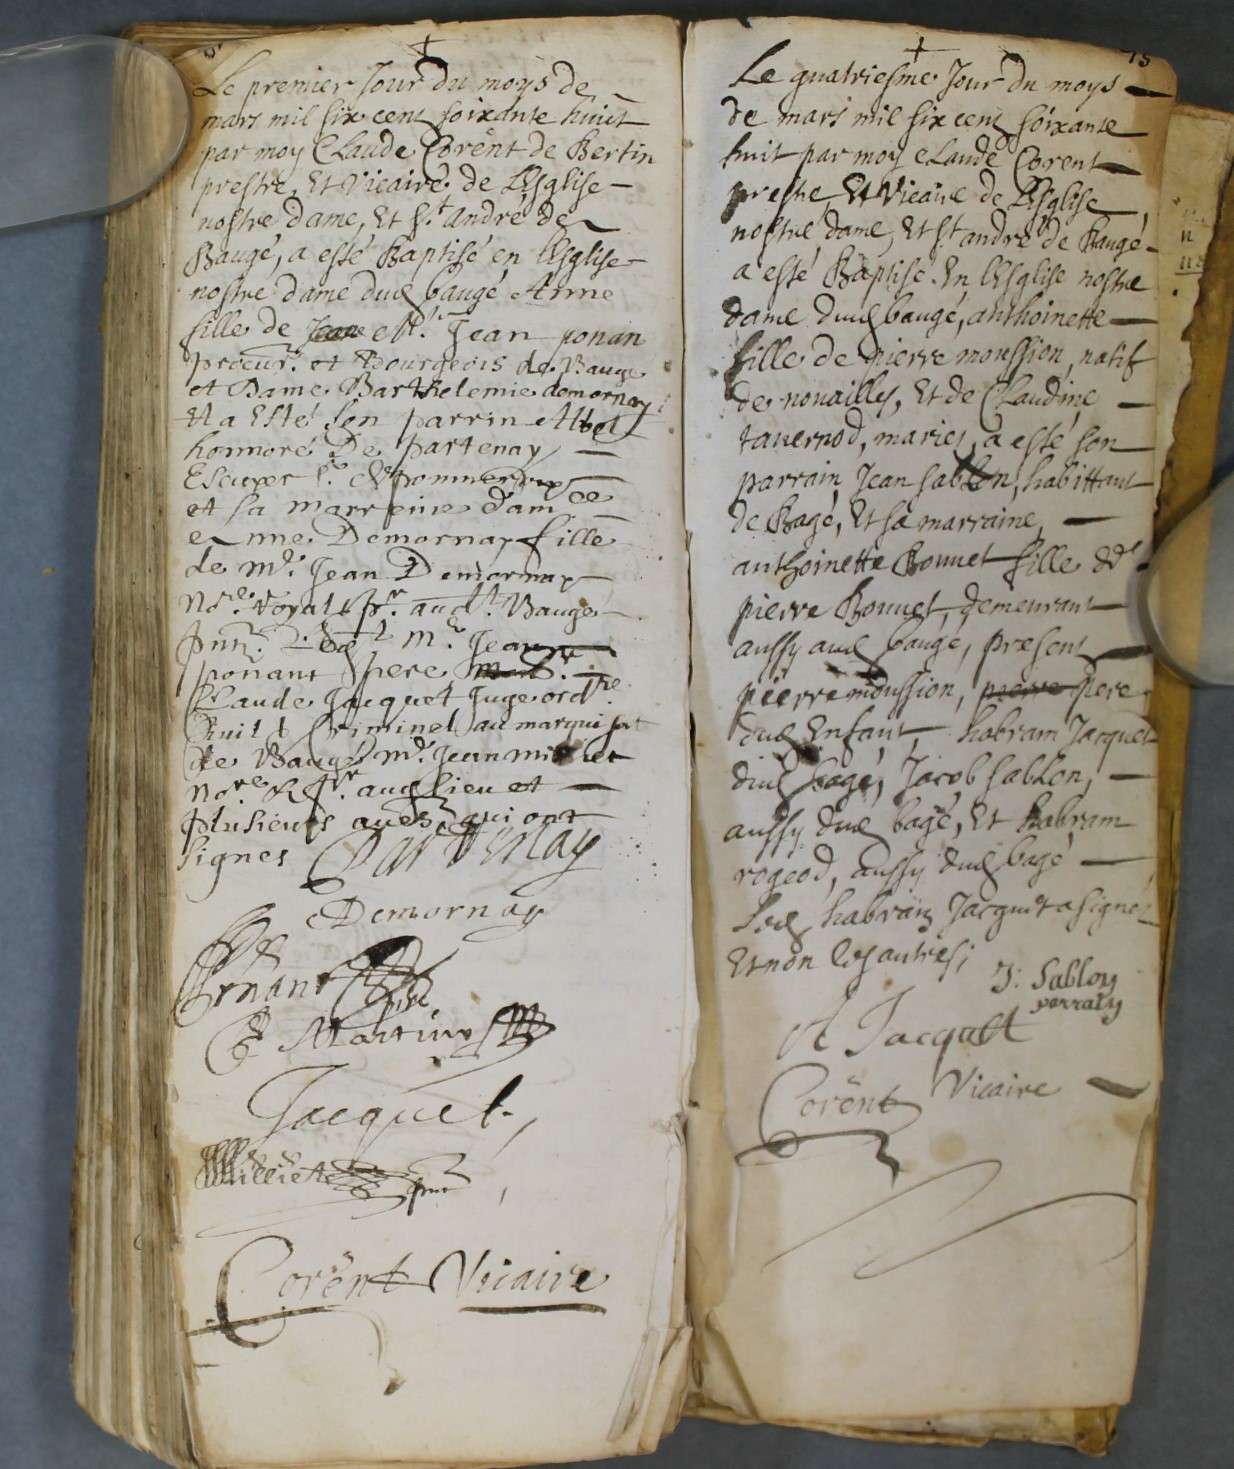 Le premier Jour du moys de
mars mil six cent soixante huict
par moy Claude Corent de Bertin
prestre, Et Vicaire de L'Esglise
nostre dame, Et St. andré de
Baugé, a esté Baptisé en l'Esglise
nostre dame dud baugé Anne
fille de Jean ponan
procur. et Bourgeois de Bauge
et Dame Barthelemie demornay
Et a Esté Son parrin
honnoré De partenay
Escuyer Sr.
et sa marreine dam
Demornay fille
de Mr. Jean Demornay
No.re Royal & pr. aud. Baugé
Mr. Jean
ponant pere
Claude Jacquet Juge ord.re
Ciuil & Criminel au marquisat
de Baugé Mr. Jean
No.re & pr. aud lieu et
plusieurs qui ont
signes Partenay
Demornay
Ponant
Martin
Jacquet
Corent Vicaire
75
Le quatriesme Jour du moys
de mars mil six cent soixante
huit par moy Claude Corent
prestre, Et Vicaire de L'Esglise
nostre dame, Et St. andré de Baugé
a esté Baptisé. En l'Esglise nostre
dame dud baugé, anthoinette
fille de pierre moussion, natif
de nouailly, Et de Claudine
tavernod, mariez, a esté son
parrain Jean sablon, habittant
de Bagé, Et sa marraine,
anthoinette Bonnet fille de
pierre Bonnet, demeurant
aussy aud baugé, present
pierre moussion, pierre pere
dud Enfant, habram Jacquet
dud bagé, Jacob sablon,
aussy dud bagé, Et habram
rogeod, aussy dud bagé
Led habram Jacquet a signé
Et non les autres;
J: Sablon
parrain
A Jacquet
Corent Vicaire